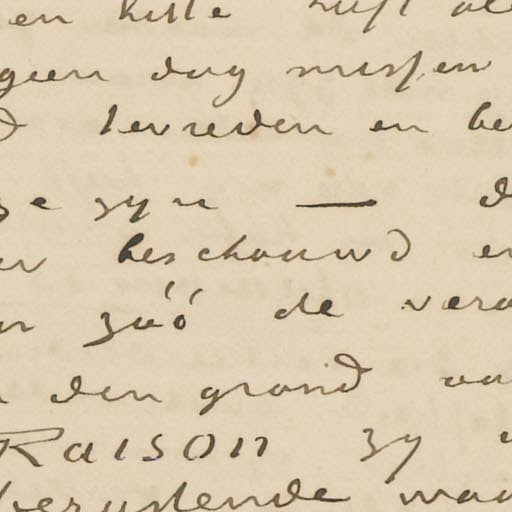 en liefst
geen dag missen
tevreden en be
ze zyn — d
beschouwd en
zóó de vera
den grond va
Raison zy
berustende waa